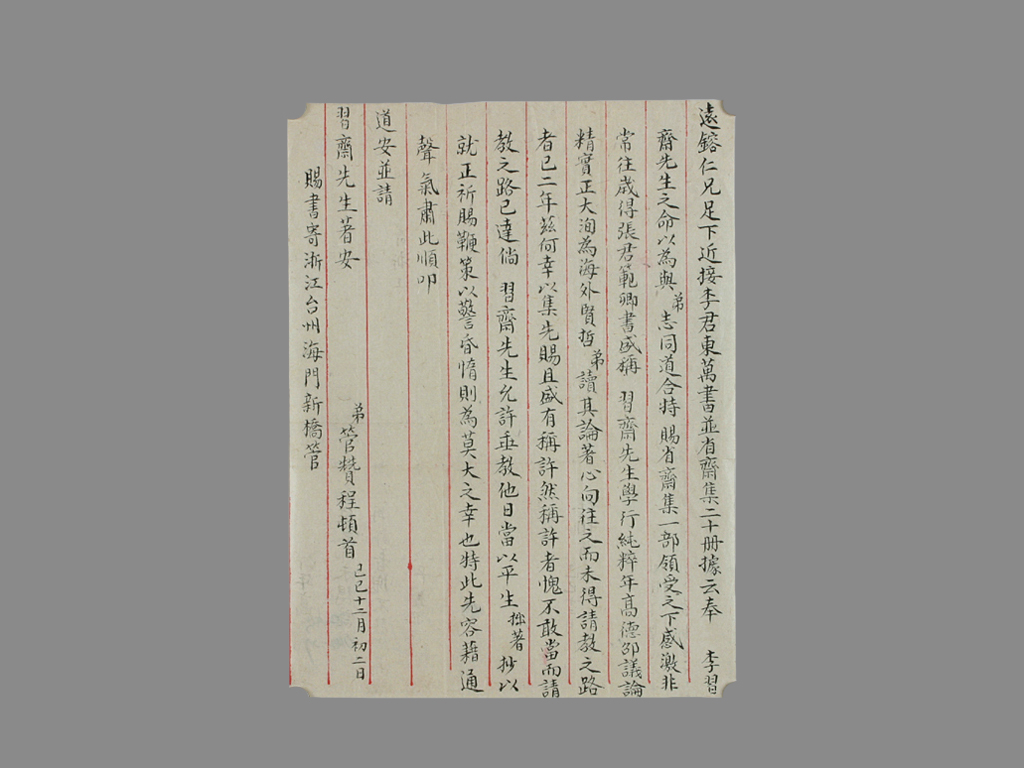 遠鎔仁兄足下近接李君東萬書並省齋集二十册據云奉 李習
齋先生之命以為與弟志同道合特 賜省齋集一部領受之下感激非
常往歲得張君範卿書盛稱 習齋先生學行純粹年高德邵議論
精實正大洵為海外賢哲弟讀其論著心向往之而未得請教之路
者已二年茲何幸以集先賜且盛有稱許然稱許者愧不敢當而請
教之路已達倘 習齋先生允許垂教他日當以平生拙著抄以
就正祈賜鞭策以警昏惰則為莫大之幸也特此先容藉通
聲氣肅此順叩
道安並請
習齋先生著安
弟管贊程頓首己巳十二月初二日
賜書寄浙江台州海門新橋管